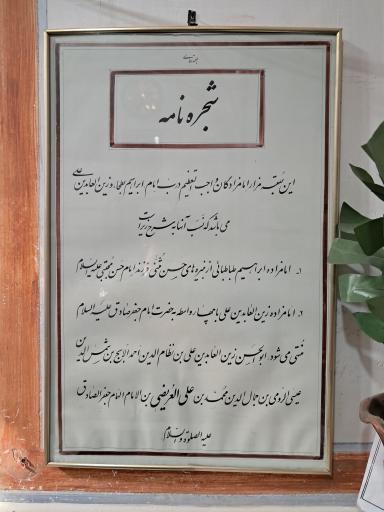 شجره نامه
این بقعه مزار امامزادگان واجب التعظیم درب امام ابراهیم طباطبا و زین العابدین علی
می باشد که نسب آنها به شرح زیر است
۱- امامزاده ابراهیم طباطبائی از نبیره های حسن مثنی فرزند امام حسن مجتبی علیه السلام
۲- امامزاده زین العابدین علی با چهار واسطه به حضرت امام جعفر صادق علیه السلام
منتهی می شود. ابوالحسن زین العابدین علی بن نظام الدین احمد الابح بن شمس الدین
عیسی الرومی بن جمال الدین محمد بن علی العریضی بن الامام الهمام جعفر الصادق
علیه الصلوة والسلام